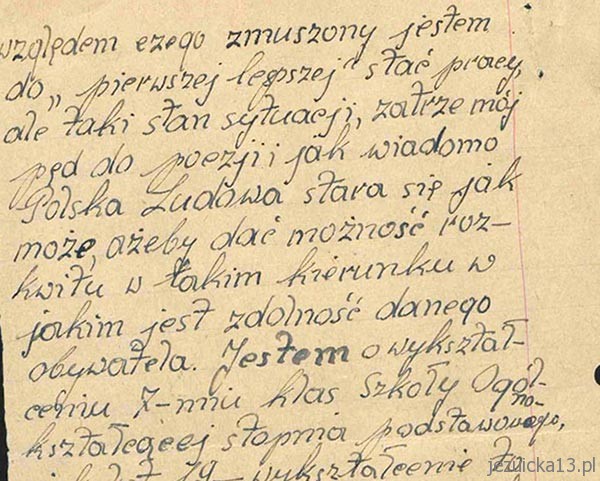 względem czego zmuszony jestem
do „pierwszej lepszej" stać pracy,
ale taki stan sytuacji, zatrze mój
pęd do poezji i jak wiadomo
Polska Ludowa stara się jak
może, ażeby dać możność roz-
kwitu w takim kierunku w
jakim jest zdolność danego
obywatela. Jestem o wykształ-
ceniu 7-miu klas Szkoły Ogól-
no-
kształcącej stopnia podstawowego,
19- wykształcenie
jezulicka13.pl